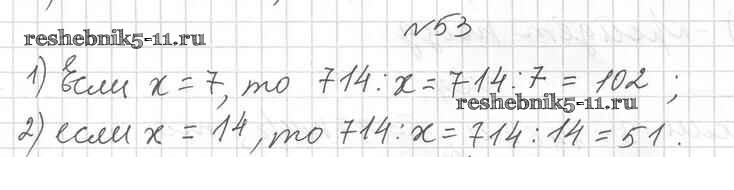 №53
reshebnik5-11.ru
1) Если x = 7, то 714 : x = 714 : 7 = 102 ;
reshebnik5-11.ru
2) если x = 14, то 714 : x = 714 : 14 = 51.